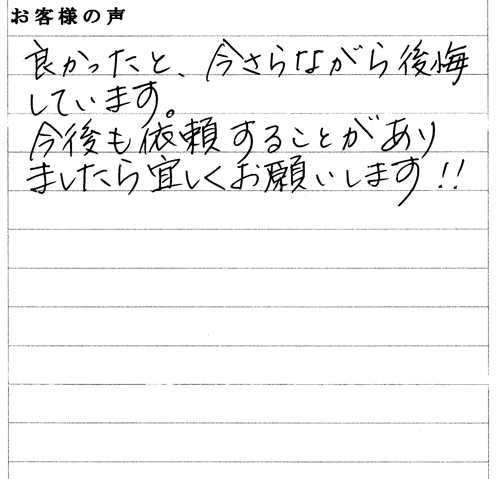 お客様の声
良かったと、今さらながら後悔
しています。
今後も依頼することがあり
ましたら宜しくお願いします!!